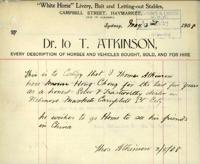 "White Horse" Livery, Bait and Letting-out Stables,
CAMPBELL STREET, HAYMARKET,
Sydney, May 2nd 1908
Dr. to T. ATKINSON,
EVERY DESCRIPTION OF HORSES AND VEHICLES BOUGHT, SOLD, AND FOR HIRE
This is to Certify that I Thomas Atkinson
have known Hong Chong for the last five years
as a honest sober & trustworthy
Campbell St City
he wishes to go Home to see his friends
in China
Thos Atkinson 2/5/08